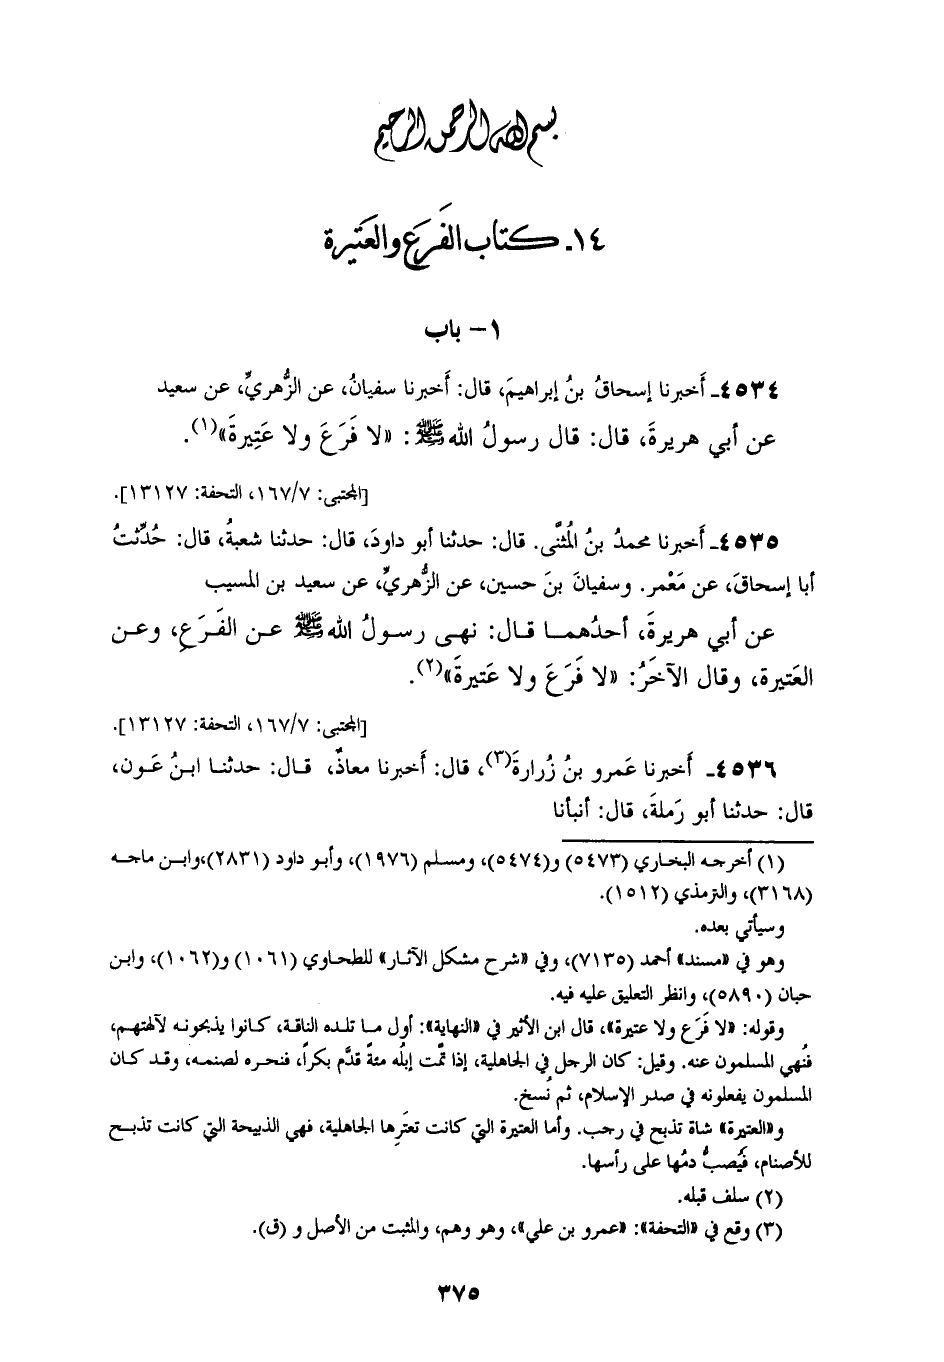 بسم الله الرحمن الرحيم
١٤ـ كتاب الفَرَع والعَتيرة
١ – باب
٤٥٣٤ـ أَخبرنا إسحاقُ بنُ إبراهيمَ، قال: أَخبرنا سفيانُ، عن الزُّهريِّ، عن سعيد
عن أبي هريرةَ، قال: قال رسولُ الله ﷺ: «لا فَرَعَ ولا عَتِيرةَ»(١).
[المجتبى: ١٦٧/٧، التحفة: ١٣١٢٧].
٤٥٣٥ـ أَخبرنا محمدُ بنُ المُثنَّى. قال: حدثنا أبو داودَ، قال: حدثنا شعبةُ، قال: حُدِّثتُ
أبا إسحاقَ، عن مَعْمر. وسفيانَ بنَ حسين، عن الزُّهريِّ، عن سعيد بن المسيب
عن أبي هريرةَ، أحدُهمـا قـال: نهـى رسـولُ الله ﷺ عـن الفَـرَعِ، وعـن
العَتيرة، وقال الآخَرُ: «لا فَرَعَ ولا عَتيرةَ»(٢).
[المجتبى: ١٦٧/٧، التحفة: ١٣١٢٧].
٤٥٣٦ـ أَخبرنا عَمرو بنُ زُرارةَ(٣)، قال: أَخبرنا معاذٌ، قـال: حدثنـا ابـنُ عَـون،
قال: حدثنا أبو رَملةَ، قال: أنبأنا
(١) أخرجـه البخـاري (٥٤٧٣) و(٥٤٧٤)، ومسلم (١٩٧٦)، وأبـو داود (٢٨٣١)،وابـن ماجـه
(٣١٦٨)، والترمذي (١٥١٢).
وسيأتي بعده.
وهو في «مسند» أحمد (٧١٣٥)، وفي «شرح مشكل الآثـار» للطحاوي (١٠٦١) و(١٠٦٢)، وابن
حبان (٥٨٩٠)، وانظر التعليق عليه فيه.
وقوله: «لا فَرَع ولا عتيرة»، قال ابن الأثير في «النهاية»: أول مـا تلـده الناقة، كـانوا يذبحونـه لآلهتهـم،
فنُهي المسلمون عنه. وقيل: كان الرجل في الجاهلية، إذا تمَّت إبلُه مئةً قدَّم بكراً، فنحره لصنمـه، وقـد كـان
المسلمون يفعلونه في صدر الإسلام، ثم نُسخ.
و«العتيرة» شاة تذبح في رجب. وأما العتيرة التي كانت تعتَرِها الجاهلية، فهي الذبيحة التي كانت تذبـح
للأصنام، فيُصبُّ دمُها على رأسها.
(٢) سلف قبله.
(٣) وقع في «التحفة»: «عمرو بن علي»، وهو وهم، والمثبت من الأصل و (ق).
٣٧٥